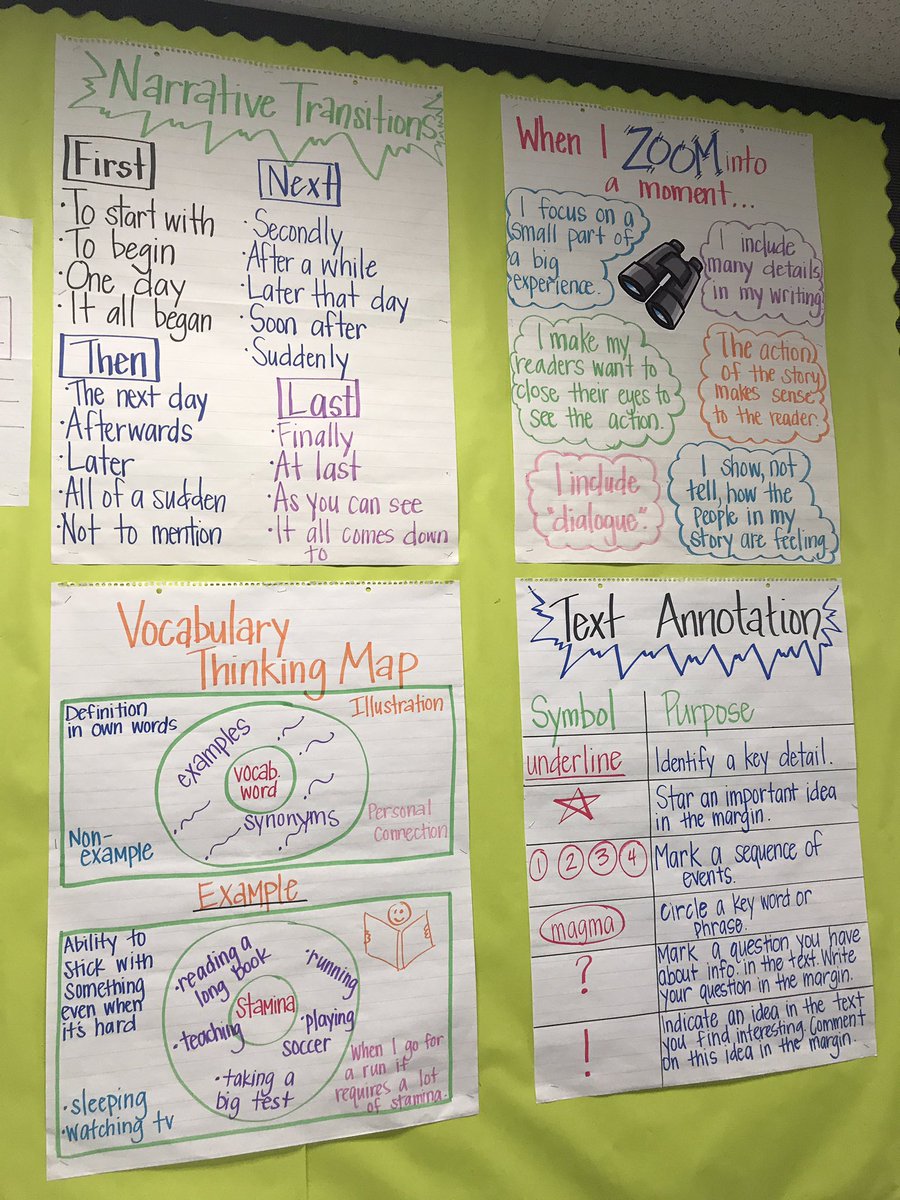 Narrative Transitions
First
· To start with
· To begin
· One day
· It all began
Next
· Secondly
· After a while
· Later that day
· Soon after
· Suddenly
Then
· The next day
· Afterwards
· Later
· All of a sudden
· Not to mention
Last
· Finally
· At last
· As you can see
· It all comes down
to
When I ZOOM into
a moment...
I focus on a
small part of
a big
experience.
I include
many details
in my writing
I make my
readers want to
close their eyes to
see the action.
The action
of the story
makes sense
to the reader.
I include
"dialogue".
I show, not
tell, how the
people in my
story are feeling
Vocabulary
Thinking Map
Definition
in own words
Illustration
examples
vocab.
word
synonyms
Non-
example
Personal
Connection
Example
Ability to
stick with
something
even when
it's hard
· reading a
long book
· running
Stamina
· teaching
· playing
soccer
· taking a
big test
· sleeping
· watching tv
When I go for
a run it
requires a lot
of stamina.
Text Annotation
Symbol
Purpose
underline
Identify a key detail.
Star an important idea
in the margin.
1 2 3 4
Mark a sequence of
events.
magma
Circle a key word or
phrase.
?
Mark a question you have
about info. in the text. Write
your question in the margin.
!
Indicate an idea in the text
you find interesting. Comment
on this idea in the margin.